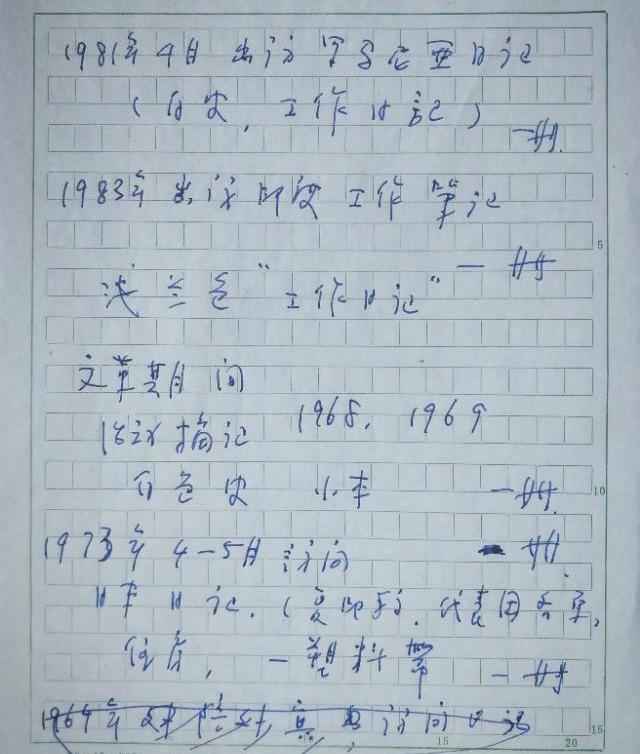 1981年4月出访罗马尼亚日记
(白皮,工作日记)
一册.
1983年出访印度工作笔记
一册
浅兰色“工作日记”
文革期间
1968. 1969
会议摘记
白色皮 小本
一册.
1973年4-5月访问
一册.
日本日记.(
代表团名单,
一册
1964年 访问日记
5
10
15
15
20